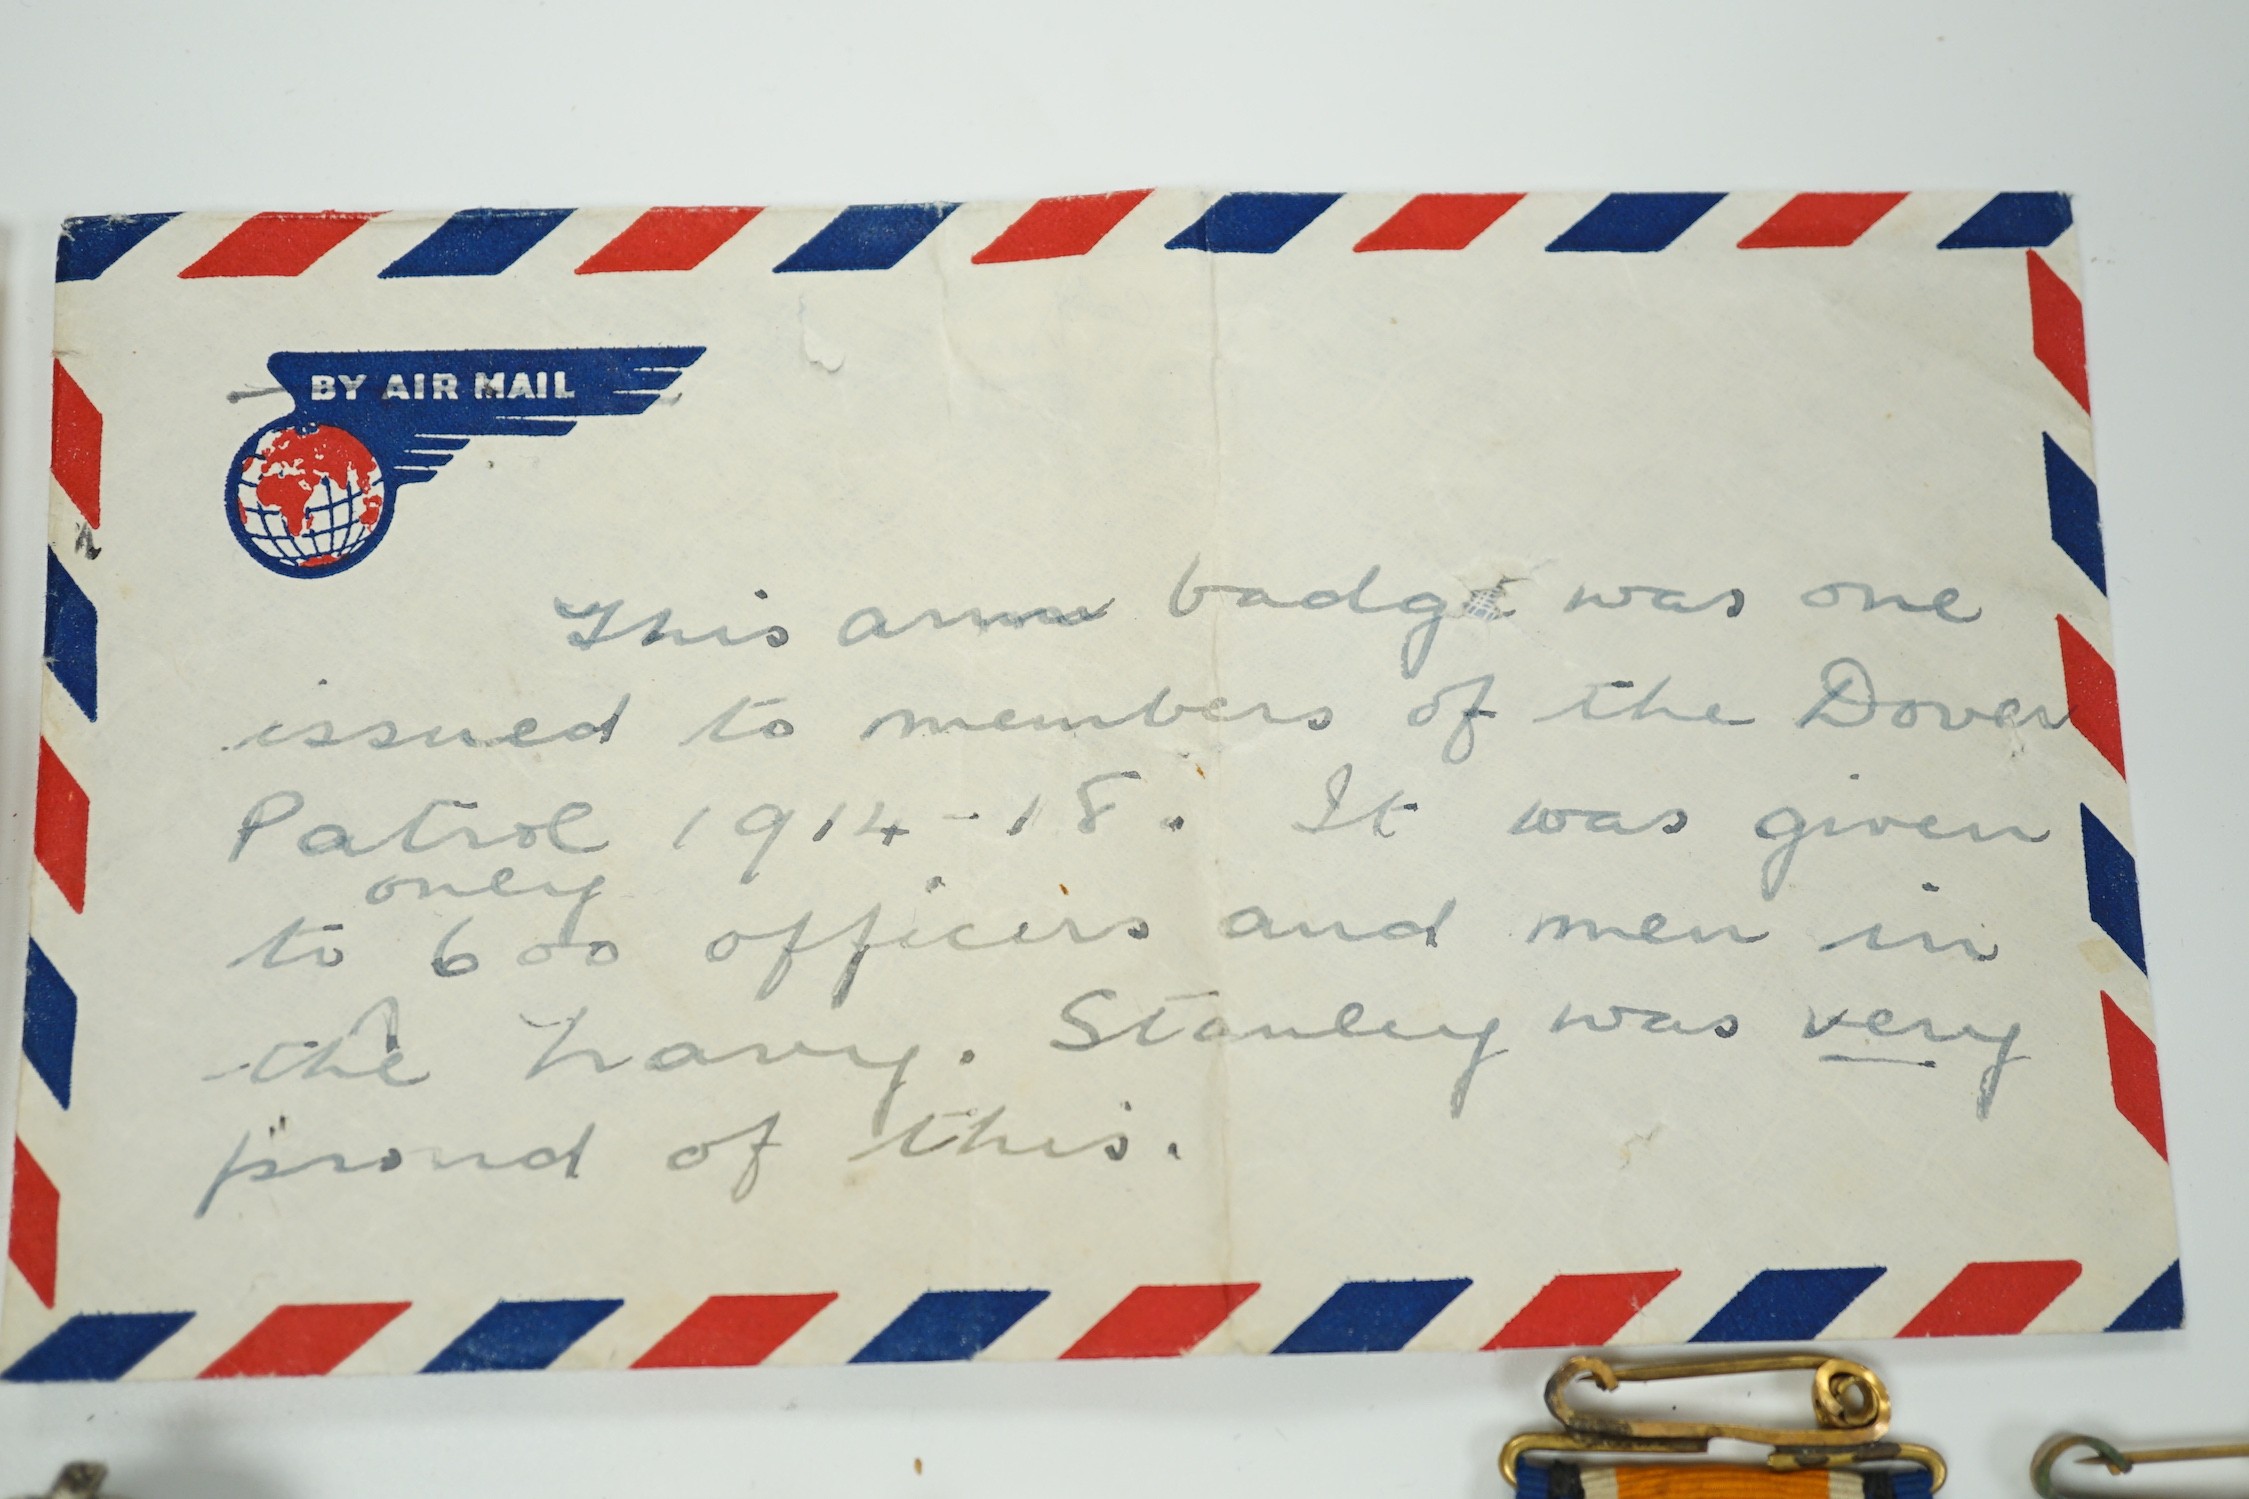 BY AIR MAIL
This arm badge was one
issued to members of the Dover
Patrol 1914-18. It was given
only
to 600 officers and men in
the Navy. Stanley was very
proud of this.